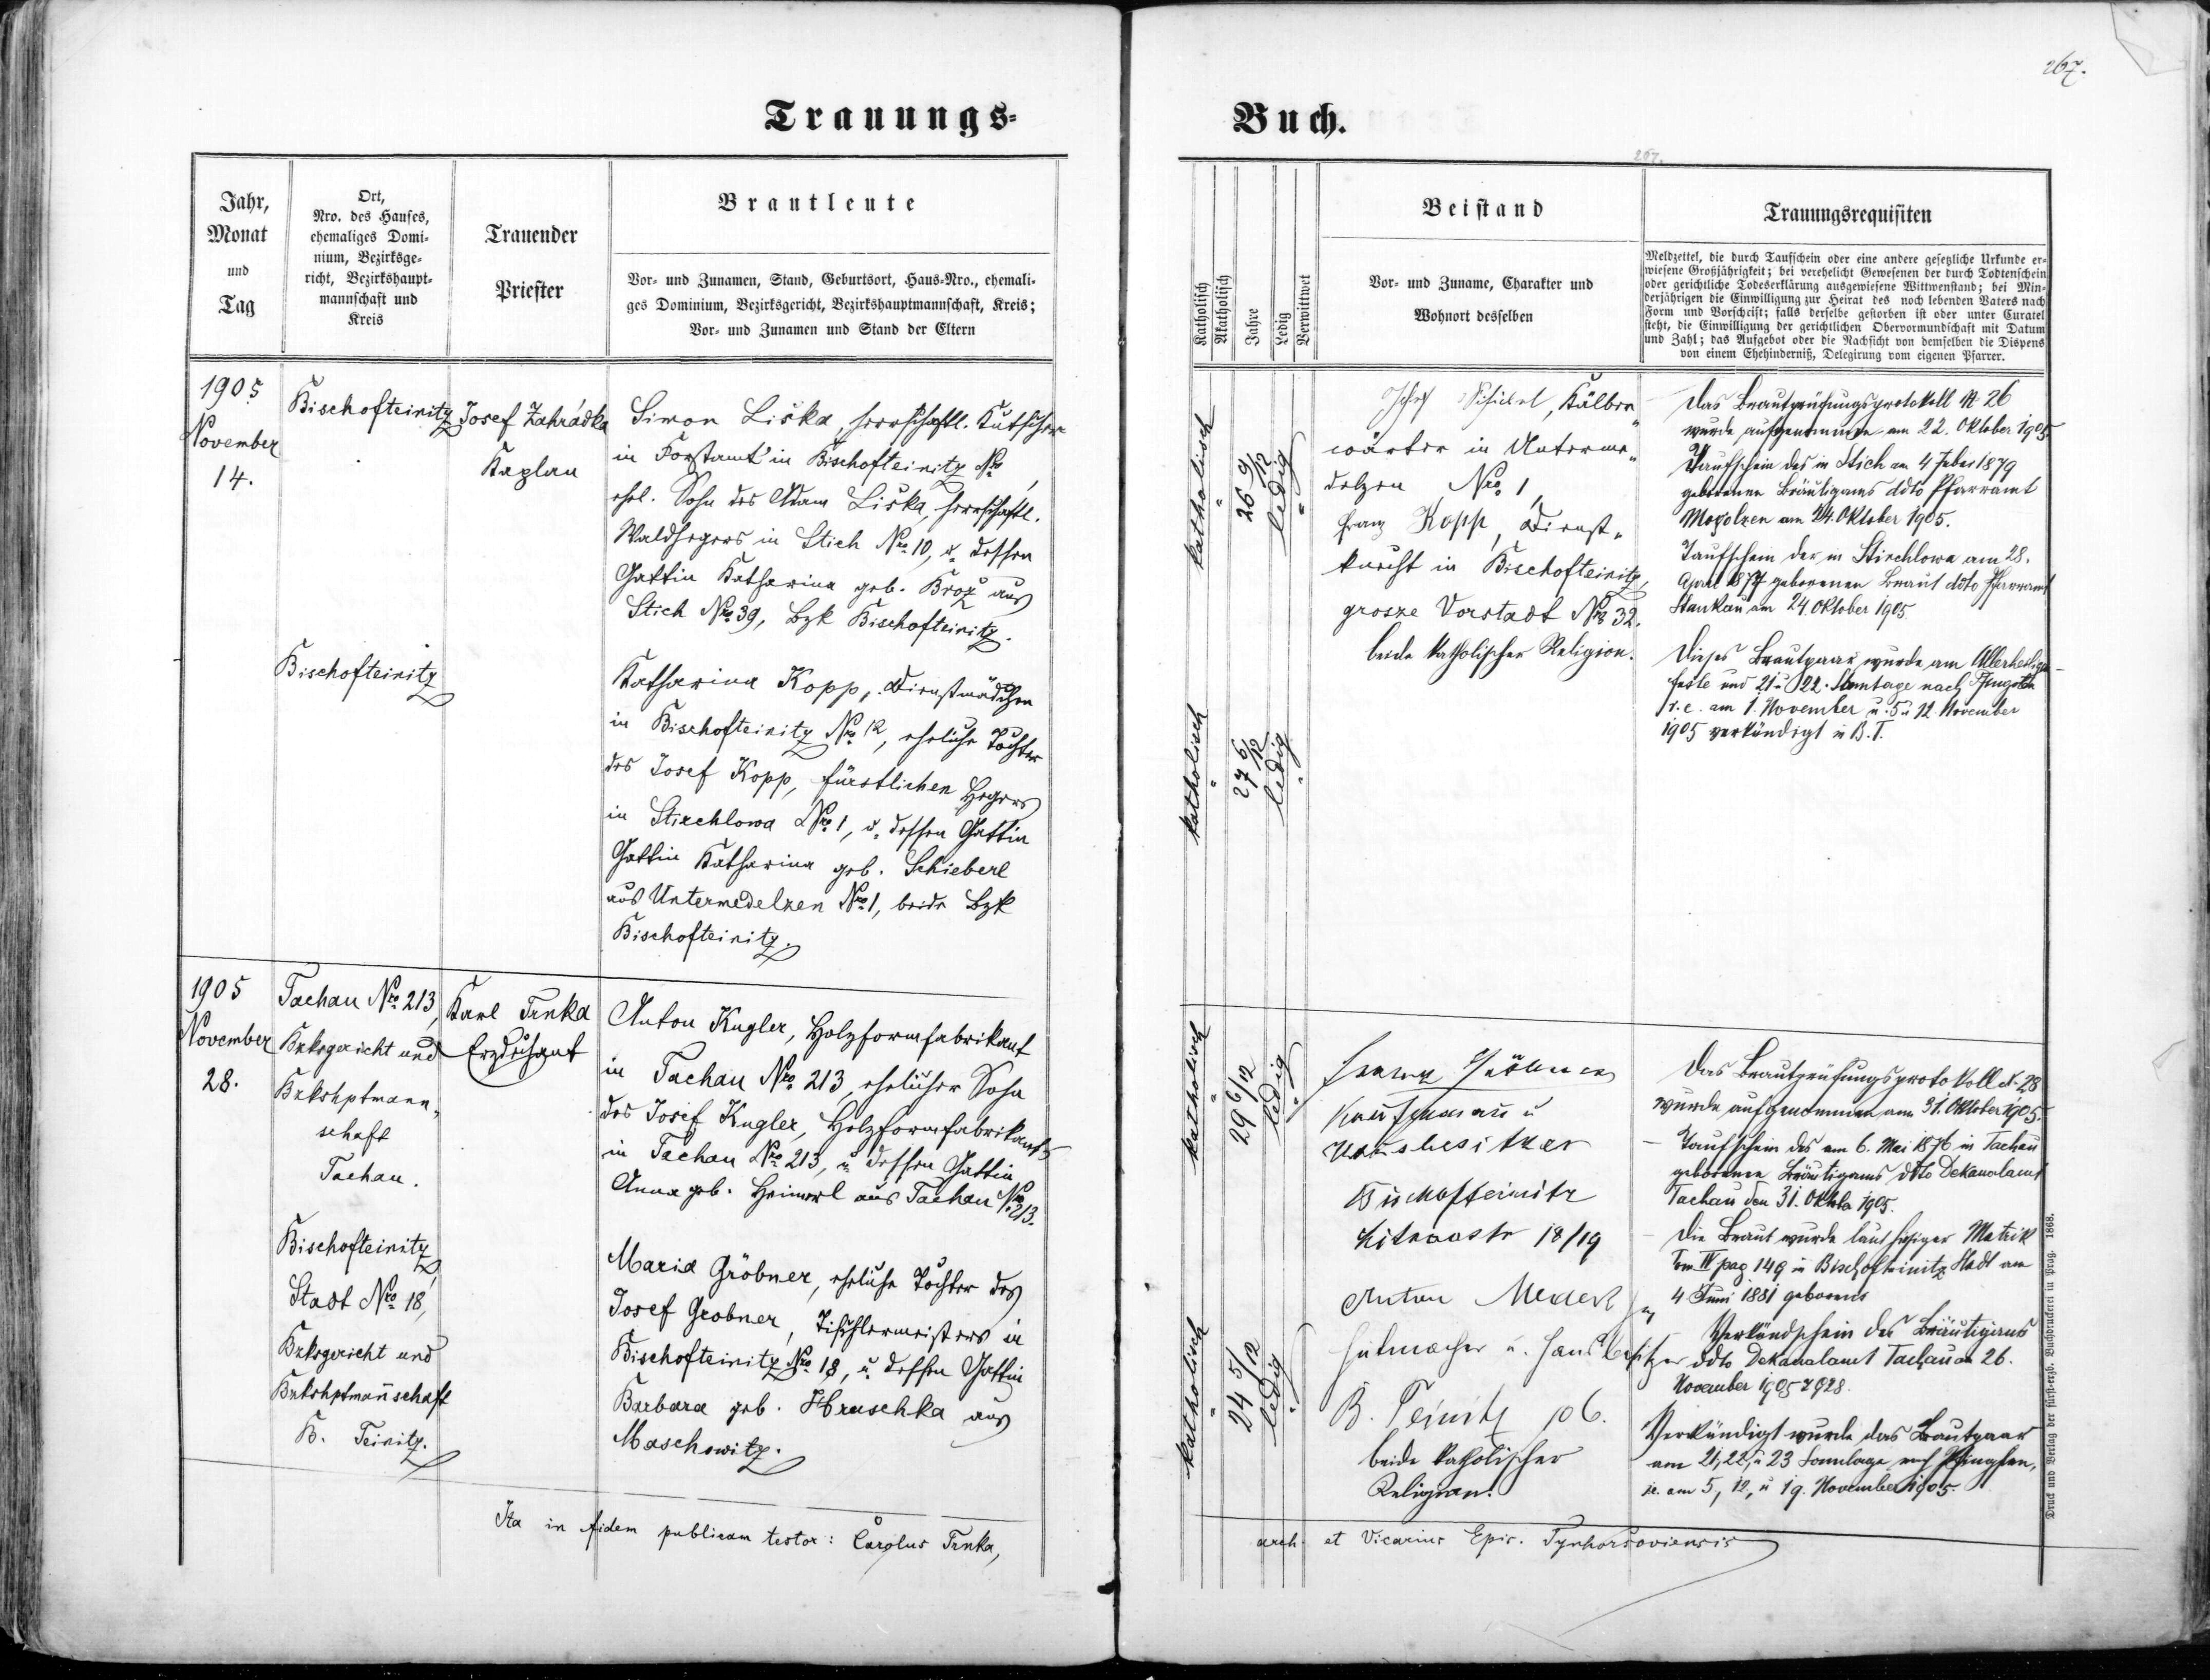 267.
Trauungs=
Buch.
267.
Jahr,
Monat
und
Tag
Ort,
Nro. des Hauses,
ehemaliges Domi-
nium, Bezirksge-
richt, Bezirkshaupt-
mannschaft und
Kreis
Trauender
Priester
Brautleute
Vor- und Zunamen, Stand, Geburtsort, Haus-Nro., ehemali-
ges Dominium, Bezirksgericht, Bezirkshauptmannschaft, Kreis;
Vor- und Zunamen und Stand der Eltern
Katholisch
Akatholisch
Jahre
Ledig
Verwittwet
Beistand
Vor- und Zuname, Charakter und
Wohnort desselben
Trauungsrequisiten
Meldzettel, die durch Taufschein oder eine andere gesetzliche Urkunde er-
wiesene Großjährigkeit; bei verehelicht Gewesenen der durch Todtenschein
oder gerichtliche Todeserklärung ausgewiesene Wittwenstand; bei Min-
derjährigen die Einwilligung zur Heirat des noch lebenden Vaters nach
Form und Vorschrift; falls derselbe gestorben ist oder unter Curatel
steht, die Einwilligung der gerichtlichen Obervormundschaft mit Datum
und Zahl; das Aufgebot oder die Nachsicht von demselben die Dispens
von einem Ehehinderniß, Delegirung vom eigenen Pfarrer.
1905
November
14.
Bischofteinitz
Josef Zahrádka
Kaplan
Simon Liška, herrschaftl. Kutscher
in Forstamt in Bischofteinitz Nro,
ehel. Sohn des Adam Liška, herrschaftl.
Waldhegers in Stich Nro. 10, u. dessen
Gattin Katharina geb. Brož aus
Stich Nro 39, Bzk Bischofteinitz.
Bischofteinitz
Katharina Kopp, Dienstmädchen
in Bischofteinitz Nro 12, eheliche Tochter
des Josef Kopp, fürstlichen Hegers
in Stirchlowa Nro 1, u. dessen Gattin
Gattin Katharina geb. Schieberl
aus Untermedelzen Nro 1, beide Bzk
Bischofteinitz.
katholisch
"
26 9/12
ledig
"
katholisch
"
27 6/12
ledig
"
Josef, Kälber„
wärter in Unterme„
delzen Nro 1,
Franz Kopp, Dienst„
knecht in Bischofteinitz,
grosze Vorstadt Nro 32.
beide katholischer Religion.
Das Brautprüfungsprotokoll N 26
wurde aufgenommen am 22. Oktober 1905.
Taufschein des in Stich am 4. Feber 1879
geborenen Bräutigams ddto Pfarramt
Mogolzen am 24. Oktober 1905.
Taufschein der in Stirchlowa am 28.
April 1877 geborenen Braut ddto Pfarramt
Stankau am 24 Oktober 1905.
Dieses Brautpaar wurde am Allerheiligen-
feste und 21 u 22. Sonntage nach Pfingsten
i.e. am 1. November u. 5 u 12. November
1905 verkündigt in B. T.
1905
November
28.
Tachau Nro. 213,
Bzksgericht und
Bzkshptmann„
schaft
Tachau.
Karl Trnka
Erzdechant
Anton Kugler, Holzformfabrikant
in Tachau Nro 213, ehelicher Sohn
des Josef Kugler, Holzformfabrikants
in Tachau Nro 213, u. dessen Gattin
Anna geb. Heimerl aus Tachau Nro 213.
Bischofteinitz
Stadt Nro 18,
Bzksgericht und
Bzkshptmanschaft
B. Teinitz.
Maria Gröbner, eheliche Tochter des
Josef Grobner, Tischlermeisters in
Bischofteinitz Nro 18, u. dessen Gattin
Barbara geb. Hruschka aus
Maschowitz.
katholisch
"
29 6/12
ledig
"
katholisch
"
24 5/12
ledig
"
Kaufmann u
Hausbesitzer
Bischofteinitz
18/19
Anton
Hutmacher u. Hausbesitzer
B. Teinitz 106.
beide katholischer
Religion.
Das Brautprüfungsprotokoll N. 28
wurde aufgenommen am 31. Oktober 1905.
Taufschein des am 6. Mai 1876 in Tachau
geborenen Bräutigams ddto Dekanalamt
Tachau den 31. Oktober 1905.
Die Braut wurde laut hiesiger Matrik
Tom IV pag 149 in Bischofteinitz Stadt am
4 Juni 1881 geboren
Verkündschein des Bräutigams
ddto Dekanalamt Tachau am 26.
November 1905
Verkündigt wurde das Brautpaar
am 21, 22, u 23 Sonntage nach Pfingsten,
ie. am 5, 12, u 19. November 1905.
Ita in fidem publicam testor: Carolus Trnka,
arch. et Vicarius Epis. Tynhorsoviensis
Druck und Verlag der fürst-erzb. Buchdruckerei in Prag. 1868.